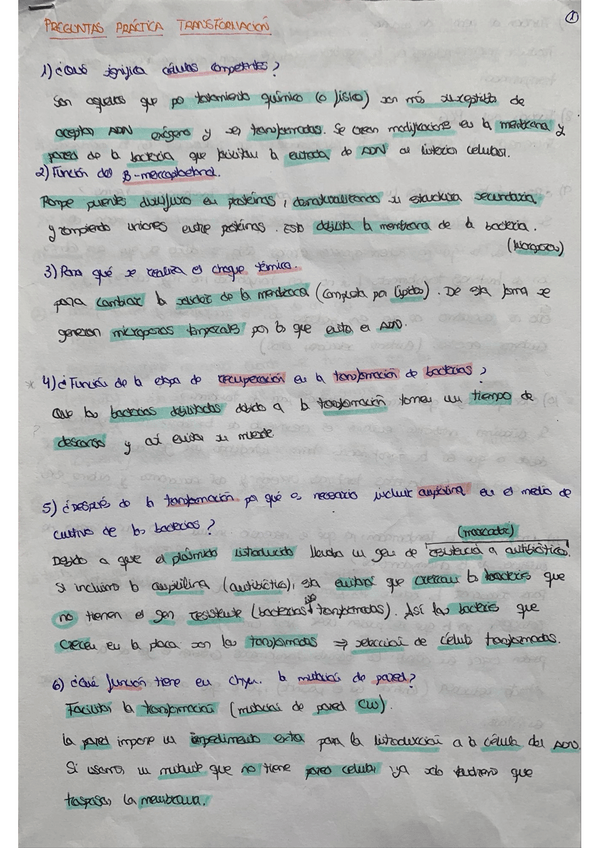 PREGUNTAS PRÁCTICA TRANSFORMACIÓN
1
1) ¿Qué significa células competentes?
Son aquellas que por tratamiento químico (o físico) son más susceptibles de
aceptar ADN exógeno y ser transformadas. Se crean modificaciones en la membrana y
pared de la bacteria que facilitan la entrada de ADN al interior celular.
2) Función del β-mercaptoetanol.
Rompe puentes disulfuro en proteínas, desnaturalizando su estructura secundaria,
y rompiendo uniones entre proteínas. Esto debilita la membrana de la bacteria.
3) Para qué se realiza el choque térmico.
para cambiar la de la membrana (compuesta por lípidos). De esta forma se
generan microporos temporales por los que entra el ADN.
* 4) ¿Función de la etapa de recuperación en la transformación de bacterias?
Que las bacterias debilitadas debido a la transformación tomen un tiempo de
descanso y así evitar su muerte
5) ¿Después de la transformación por qué es necesario incluir ampicilina en el medio de
cultivo de las bacterias?
(marcador)
Debido a que el plásmido introducido llevaba un gen de resistencia a antibiótico.
Si incluimos la ampicilina (antibiótico), esta evitará que crezcan las bacterias que
no tienen el gen resistente (bacterias no transformadas). Así las bacterias que
crecen en la placa son las transformadas ⇒ selección de células transformadas.
6) ¿Qué función tiene en Chlym. la mutación de pared?
Facilitar la transformación (mutación de pared CW).
La pared impone un impedimento extra para la introducción a la célula del ADN.
Si usamos un mutante que no tiene pared celular, ya solo tendremos que
traspasar la membrana.